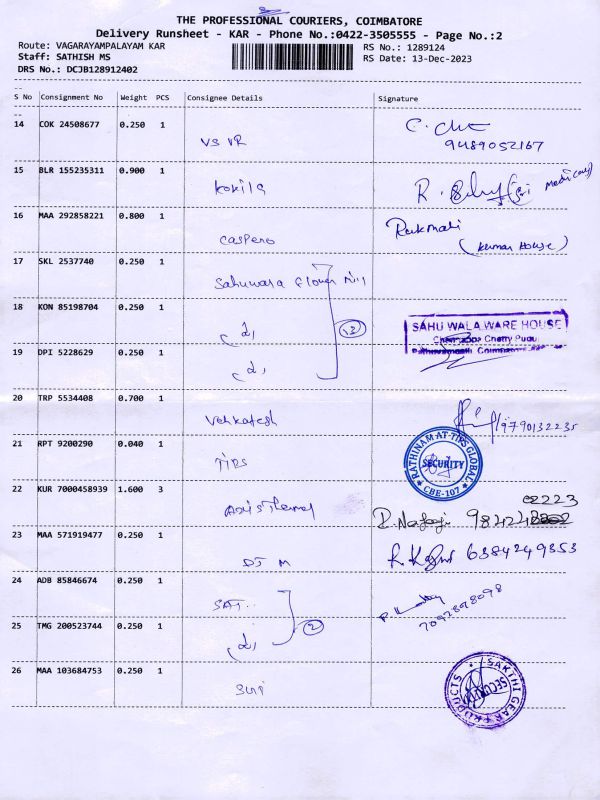 THE PROFESSIONAL COURIERS, COIMBATORE
Delivery Runsheet - KAR - Phone No.:0422-3505555 - Page No.:2
Route: VAGARAYAMPALAYAM KAR
RS No.: 1289124
Staff: SATHISH MS
RS Date: 13-Dec-2023
DRS No.: DCJB128912402
S No Consignment No Weight PCS Consignee Details Signature
14 COK 24508677 0.250 1
VS VR
9489052167
15 BLR 155235311 0.900 1
Kokila
16 MAA 292858221 0.800 1
Caspero
Rukmani
(Kumar House)
17 SKL 2537740 0.250 1
Sahuwara Flower Mill
18 KON 85198704 0.250 1
13
SAHU WALA WARE HOUSE
19 DPI 5228629 0.250 1
20 TRP 5534408 0.700 1
Venkatesh
9790132235
21 RPT 9200290 0.040 1
TIPS
RATHINAM AT TIPS GLOBAL
SECURITY
CBE-107
22 KUR 7000458939 1.600 3
Axis Thermal
23 MAA 571919477 0.250 1
DJ M
6384249353
24 ADB 85846674 0.250 1
SAT
7092898098
25 TMG 200523744 0.250 1
2
26 MAA 103684753 0.250 1
Suri
SAKTHI GEAR PRODUCTS
SECURITY